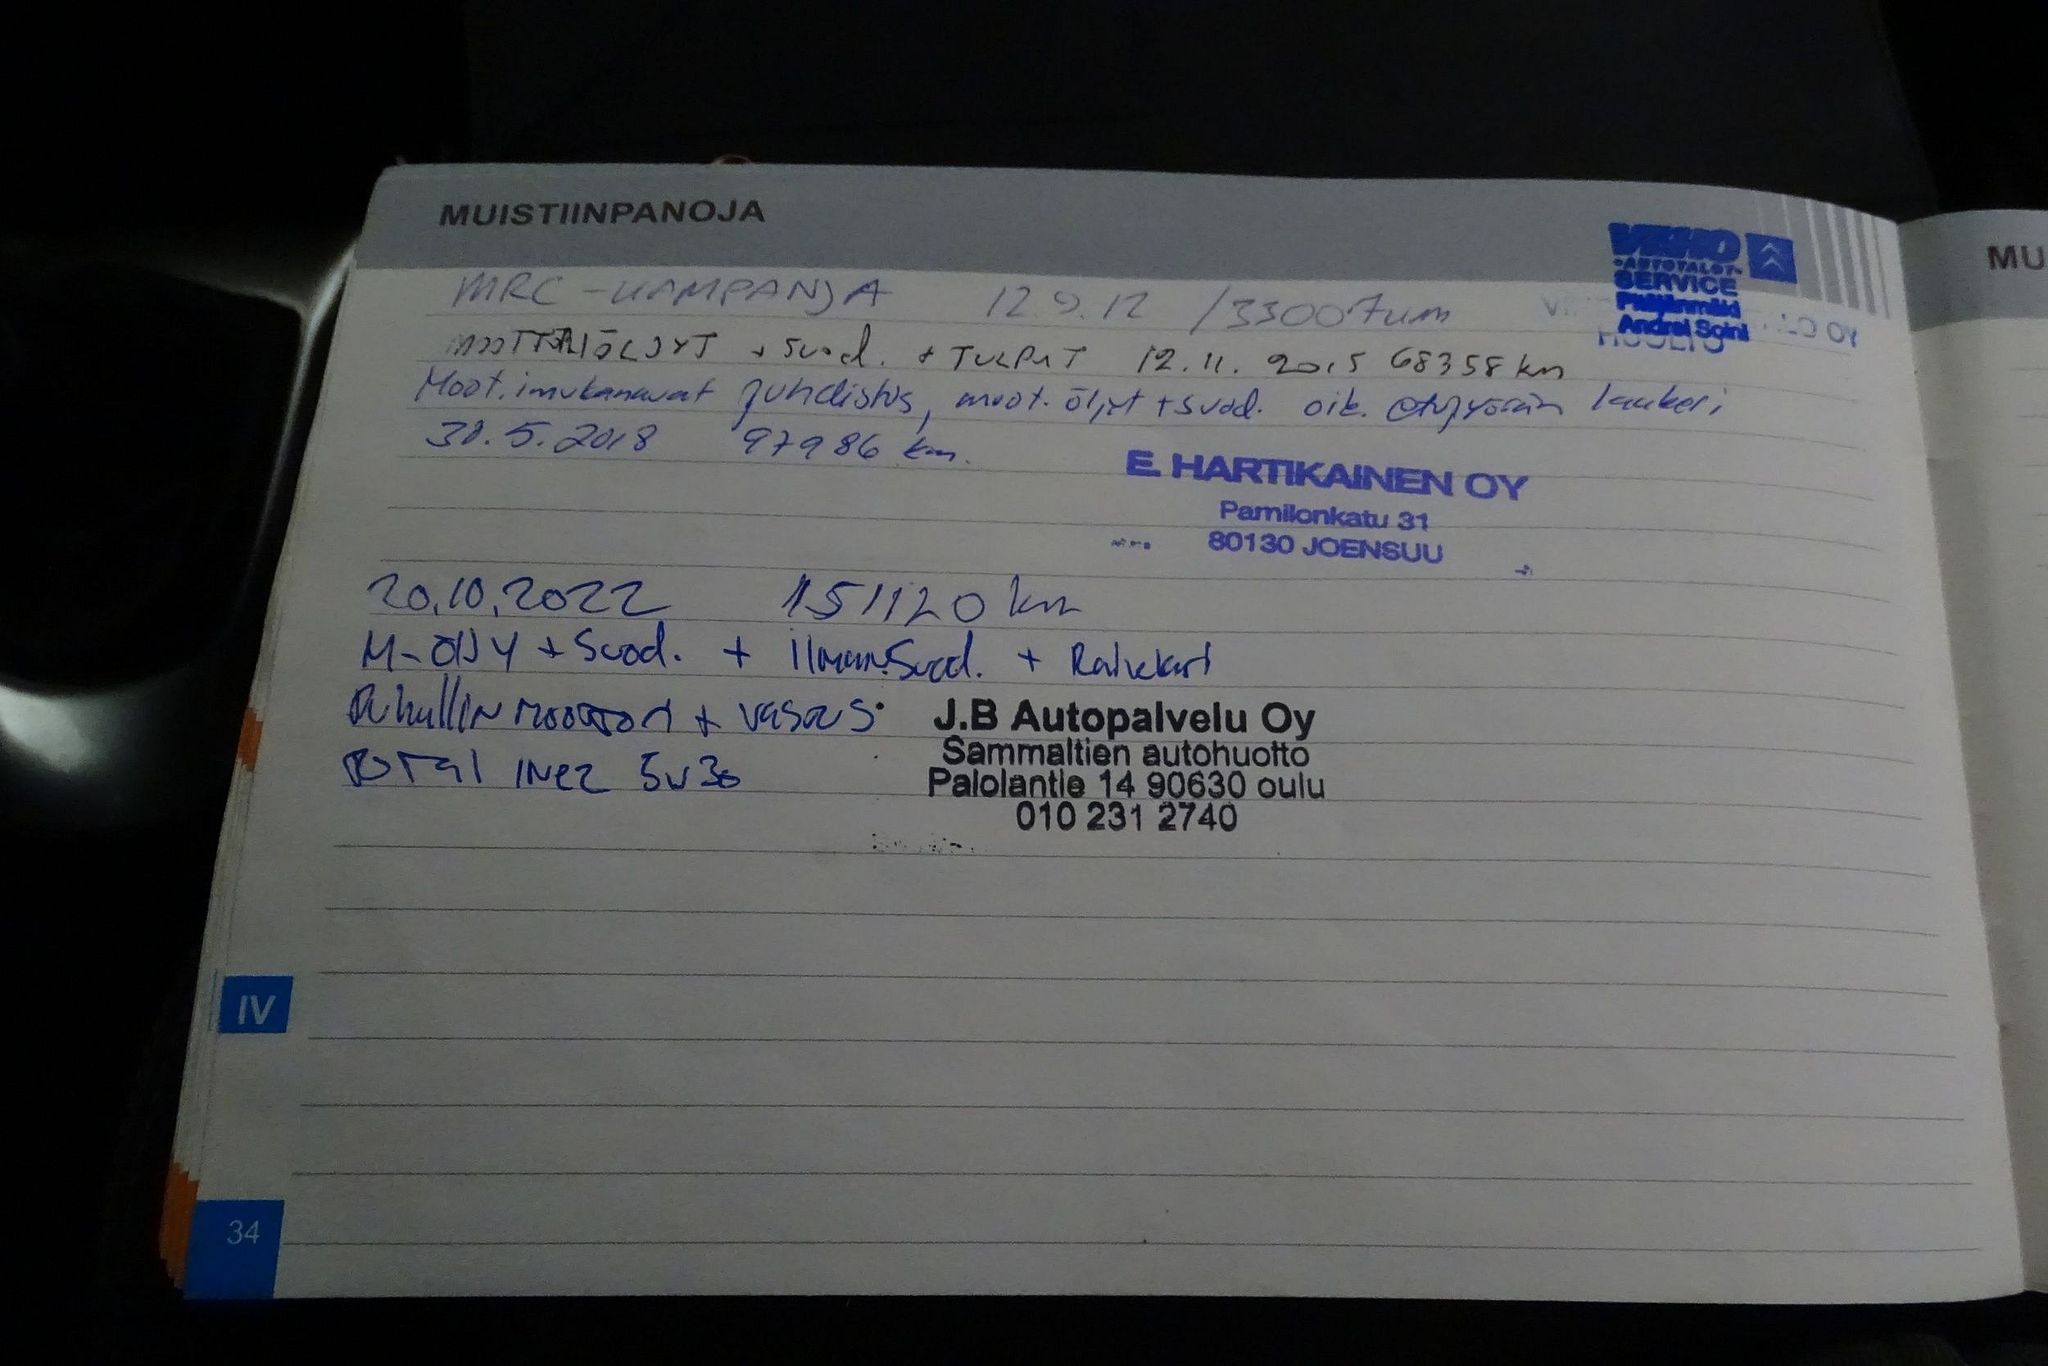 MUISTIINPANOJA
MU
VEHO
AUTOTALOT
SERVICE
Andrei Soini
MRC-KAMPANJA 12.9.12 /33007km
LO OY
HUOLTO
MOOTTORIÖLJYT + Suod. + TULPAT 12.11.2015 68358 km
Moot. imukanavat puhdistus, moot. öljyt + suod. oik. etupyörän laakeri
30.5.2018 97986 km.
E. HARTIKAINEN OY
Pamilonkatu 31
80130 JOENSUU
20.10.2022 151120 km
M-ÖljY + Suod. + ilmanSuod. +
Puhallin moottori + vastus
TOTAL iNEZ 5w30
J.B Autopalvelu Oy
Sammaltien autohuolto
Palolantie 14 90630 oulu
010 231 2740
IV
34